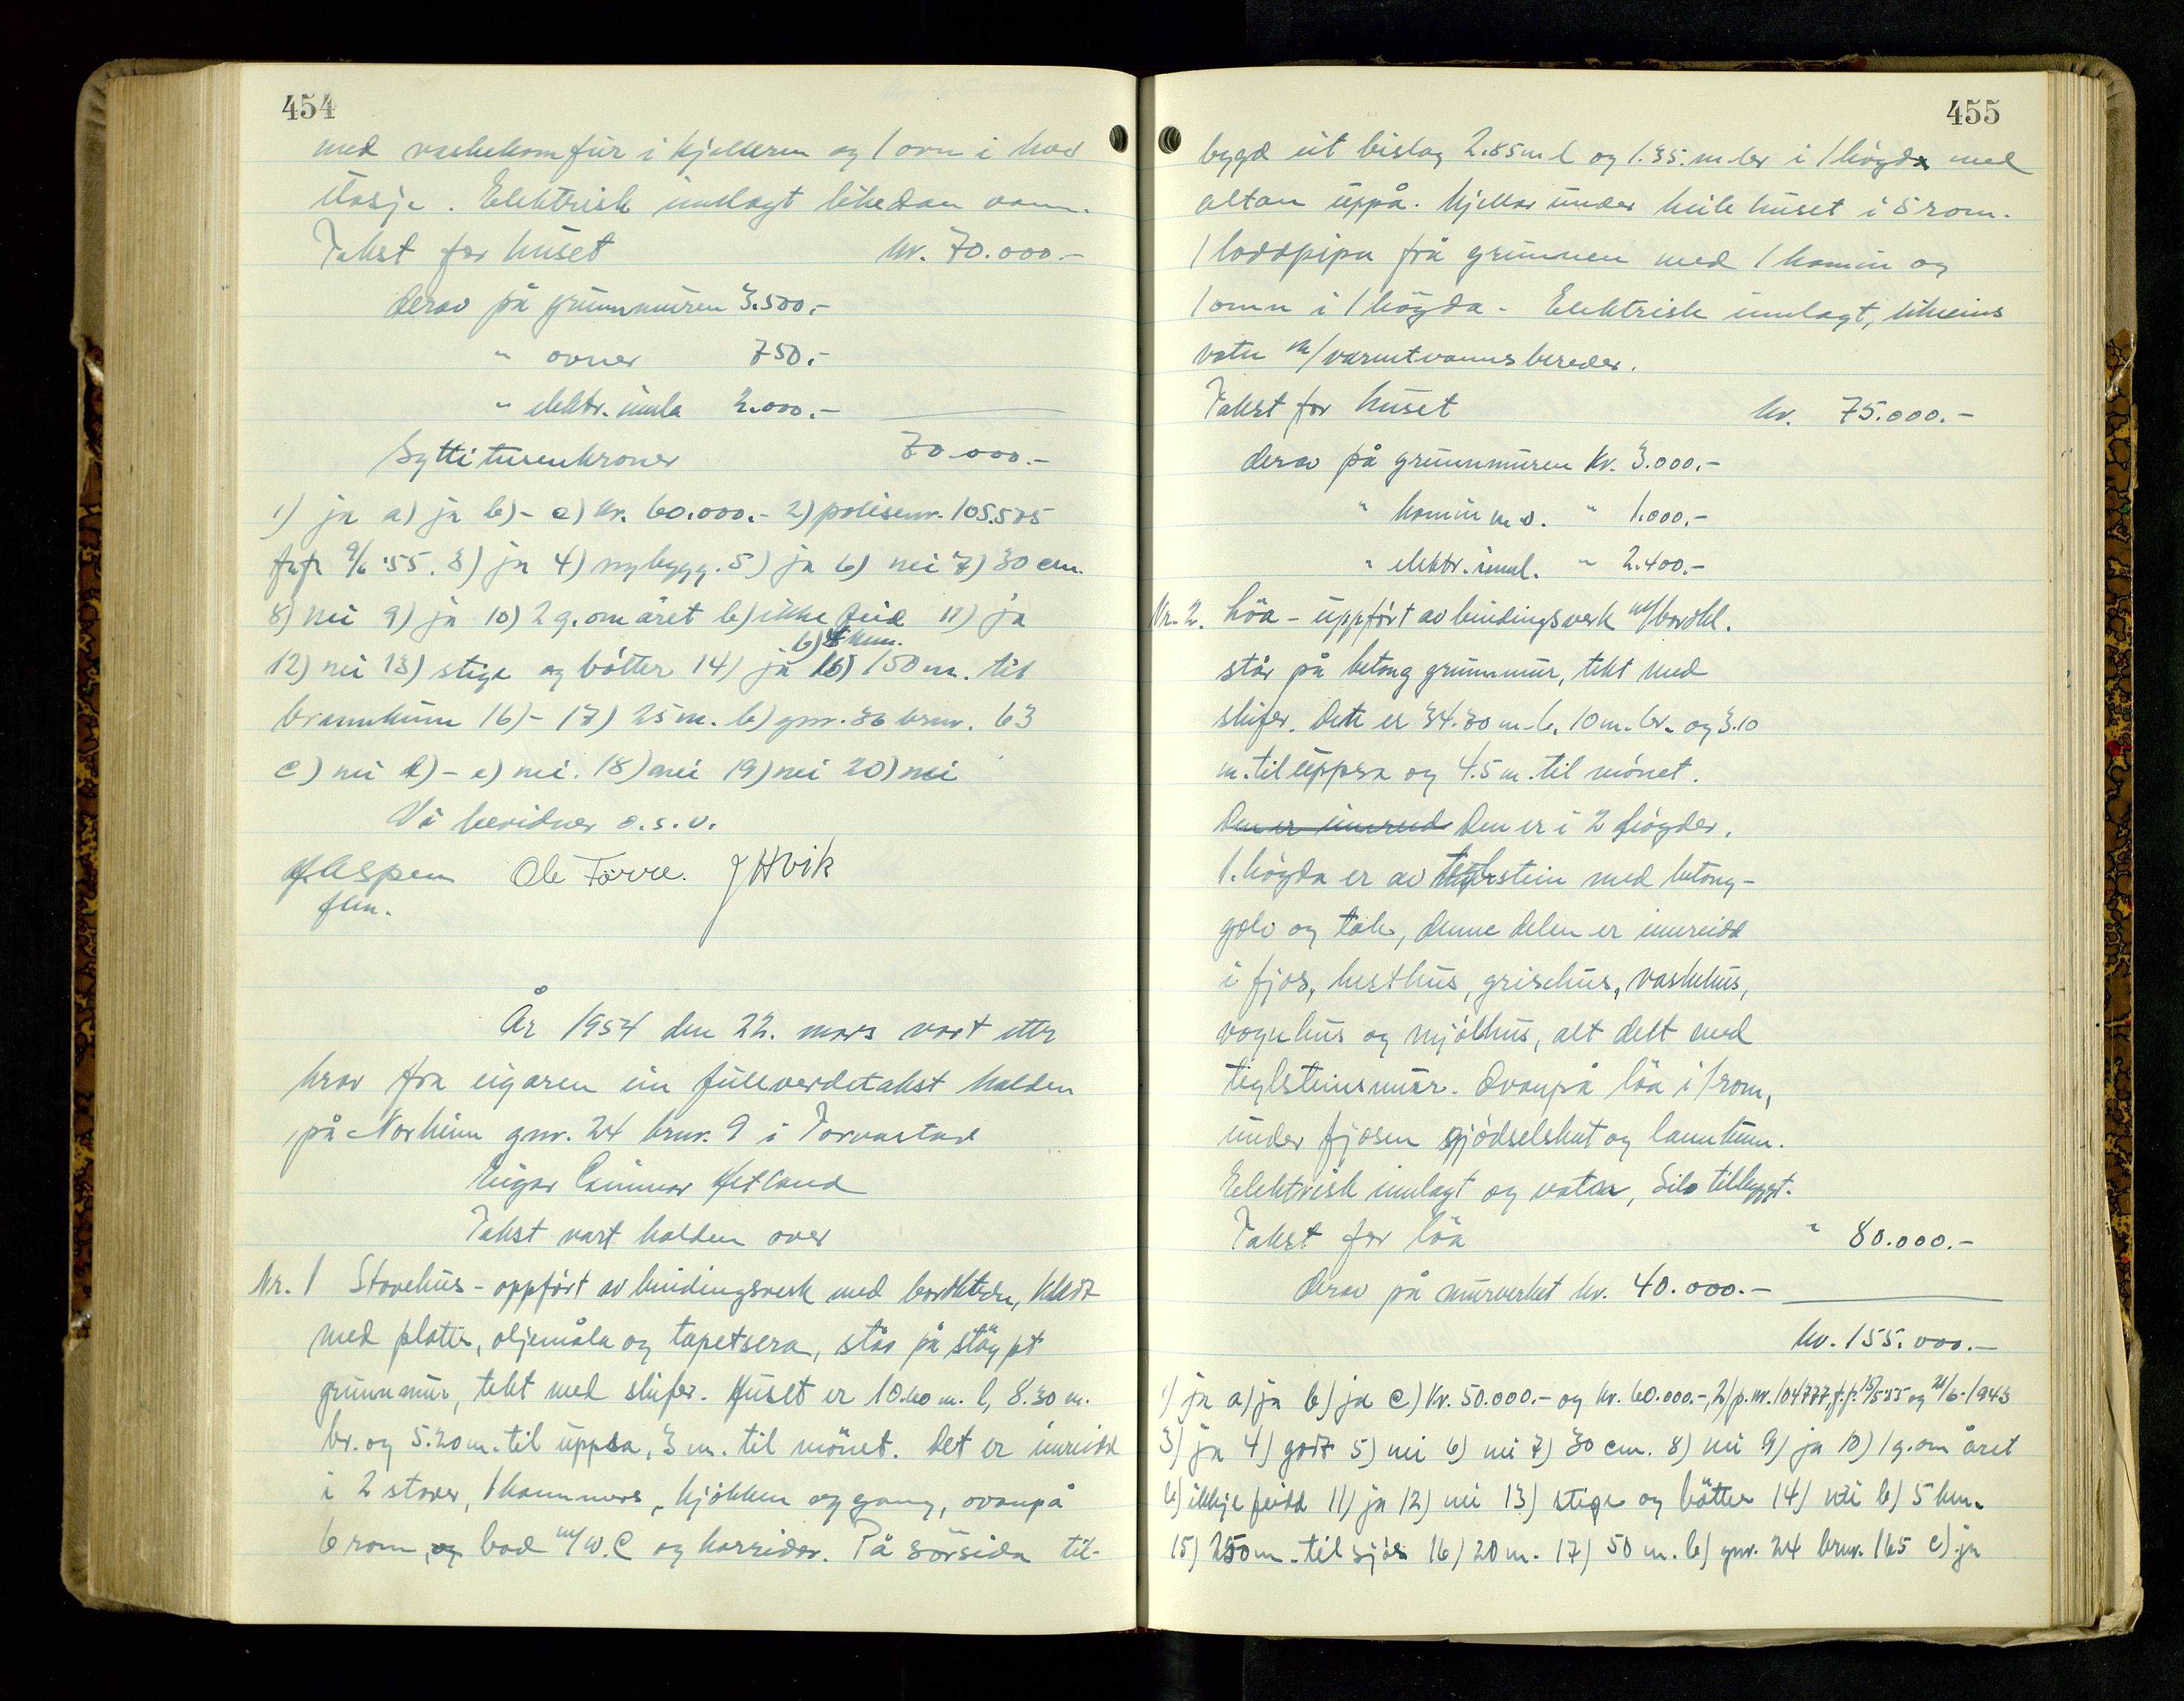 454
med vaskekomfür i kjelleren og 1 ovn i hver
etasje. Elektrisk innlagt likedan vann.
Takst for huset kr. 70.000.-
derav på grunnmuren 3.500.-
" ovner 750.-
" elektr. innla 2.000.-
Syttitusenkroner 70.000.-
1) ja a) ja b) - c) kr. 60.000.- 2) polisenr. 105.575
f.f. 9/6 '55. 3) ja 4) nybygg. 5) ja 6) nei 7) 30 cm.
8) nei 9) ja 10) 2 g. om året b) ikke feid 11) ja
b) 4 km.
12) nei 13) stige og bøtter 14) ja 15) 150 m. til
brannkum 16) - 17) 25 m. b) gnr. 36 brnr. 63
c) nei d) - e) nei. 18) nei 19) nei 20) nei
Vi bevidner o.s.v.
H. Aspen Ole Førre. J Hvik
flm.
År 1954 den 22. mars vart etter
krav fra eigaren ein fullverdetakst halden
på Norheim gnr. 24 brnr. 9 i Torvastad
Eigar Hetland
Takst vart halden over
Nr. 1 Stovehus - oppført av bindingsverk med bordkledn, kledt
med plater, oljemåla og tapetsera, står på støypt
grunnmur, tekt med skifer. Huset er 10.60 m. l, 8.30 m.
br. og 5.20 m. til uppsa, 3 m. til mønet. Det er innreidd
i 2 stover, 1 kammers, kjøkken og gang, ovanpå
6 rom, og bad m/W.C og korridor. På sørsida til-
455
bygd eit bislag 2.85 m l og 1.35. m. br i 1 høgda med
altan uppå. Kjellar under heile huset i 5 rom.
1 loddpipa frå grunnen med 1 kamin og
1 omn i 1 høgda - Elektrisk innlagt, likeins
vatn m/varmtvannsbereder.
Takst for huset kr. 75.000.-
derav på grunnmuren kr. 3.000.-
" kamin m o. " 1.000.-
" elektr. innl. " 2.400.-
Nr. 2. Löa - uppført av bindingsverk m/bordkl.
står på betong grunnmur, tekt med
skifer. Dette er 34.30 m. l. 10 m. br. og 3.10
m. til uppsa og 4.5 m. til mønet.
Den er innreid Den er i 2 høgder.
1. høgda er av teglstein med betong-
golv og tak, denne delen er innreidd
i fjos, hesthus, grisehus, vaskehus,
vognhus og mjølhus, alt dett med
teglsteinsmur. Ovanpå löa i 1 rom,
under fjosen gjødselskut og lannkum.
Elektrisk innlagt og vatn, Silo tilbyggt.
Takst for löa " 80.000.-
derav på murverket kr. 40.000.-
kr. 155.000.-
1) ja a) ja b) ja c) kr. 50.000.- og kr. 60.000.-, 2) p.nr. 104777, f.f. 15/5 55 og 28/6 - 1943
3) ja 4) godt 5) nei 6) nei 7) 30 cm. 8) nei 9) ja 10) 1 g. om året
b) ikkje feidd 11) ja 12) nei 13) stige og bøtter 14) nei b) 5 km.
15) 250 m. til sjøs 16) 20 m. 17) 50 m. b) gnr. 24 brnr. 165 c) ja